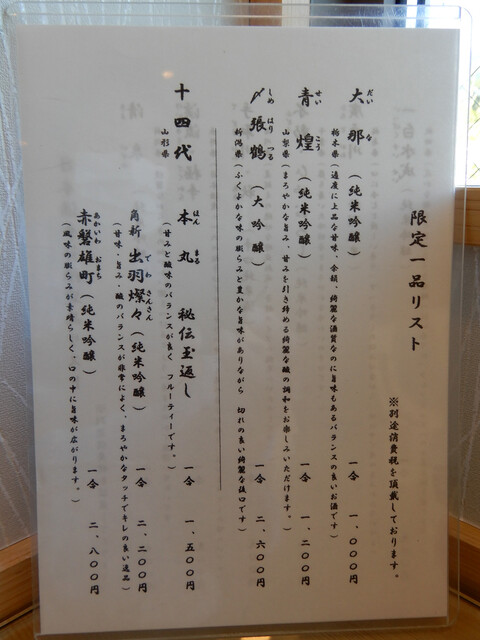 限定一品リスト
※別途消費税を頂戴しております。
大那（純米吟醸） 一合 一、〇〇〇円
だいな
栃木県（適度に上品な甘味、余韻、綺麗な酒質なのに旨味もあるバランスの良いお酒です）
青煌（純米吟醸） 一合 一、二〇〇円
せいこう
山梨県（まろやかな旨み・甘みを引き締める綺麗な酸の調和をお楽しみいただけます。）
〆張鶴（大吟醸） 一合 二、六〇〇円
しめはりつる
新潟県（ふくよかな味の膨らみと豊かな旨味がありながら 切れの良い綺麗な後口です）
十四代 本丸 秘伝玉返し 一合 一、五〇〇円
ほんまる
山形県 （甘みと酸味のバランスが良く フルーティーです。）
角新 出羽燦々（純米吟醸） 一合 二、二〇〇円
でわさんさん
（甘味・旨み・酸のバランスが非常によく、まろやかなタッチでキレの良い逸品）
赤磐雄町（純米吟醸） 一合 二、八〇〇円
あかいわおまち
（風味の膨らみが素晴らしく、口の中に旨味が広がります。）